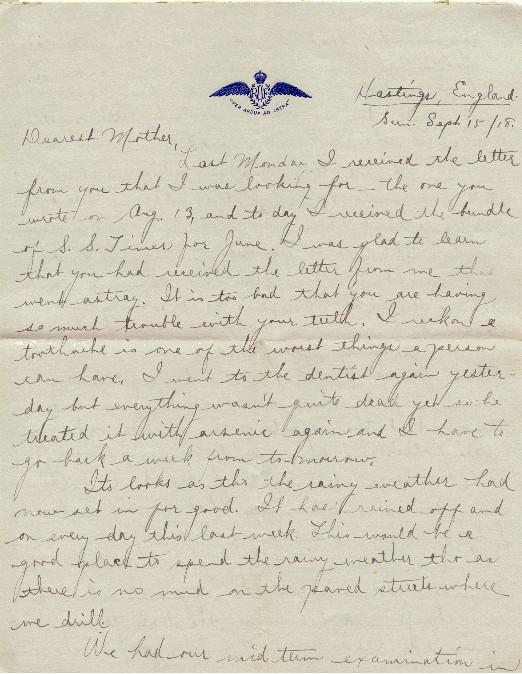 RFC
PER ARDUA AD ASTRA
Hastings, England.
Sun. Sept 15/18.
Dearest Mother,
Last Monday I received the letter
from you that I was looking for – the one you
wrote on Aug. 13, and to day I received the bundle
of S. S. Times for June. I was glad to learn
that you had received the letter from me that
went astray. It is too bad that you are having
so much trouble with your teeth. I reckon a
toothache is one of the worst things a person
can have. I went to the dentist again yester-
day but everything wasn't quite dead yet so he
treated it with arsenic again and I have to
go back a week from to-morrow.
Its looks as tho the rainy weather had
now set in for good. It has rained off and
on every day this last week. This would be a
good place to spend the rainy weather tho as
there is no mud on the paved streets where
we drill.
We had our mid term examination in